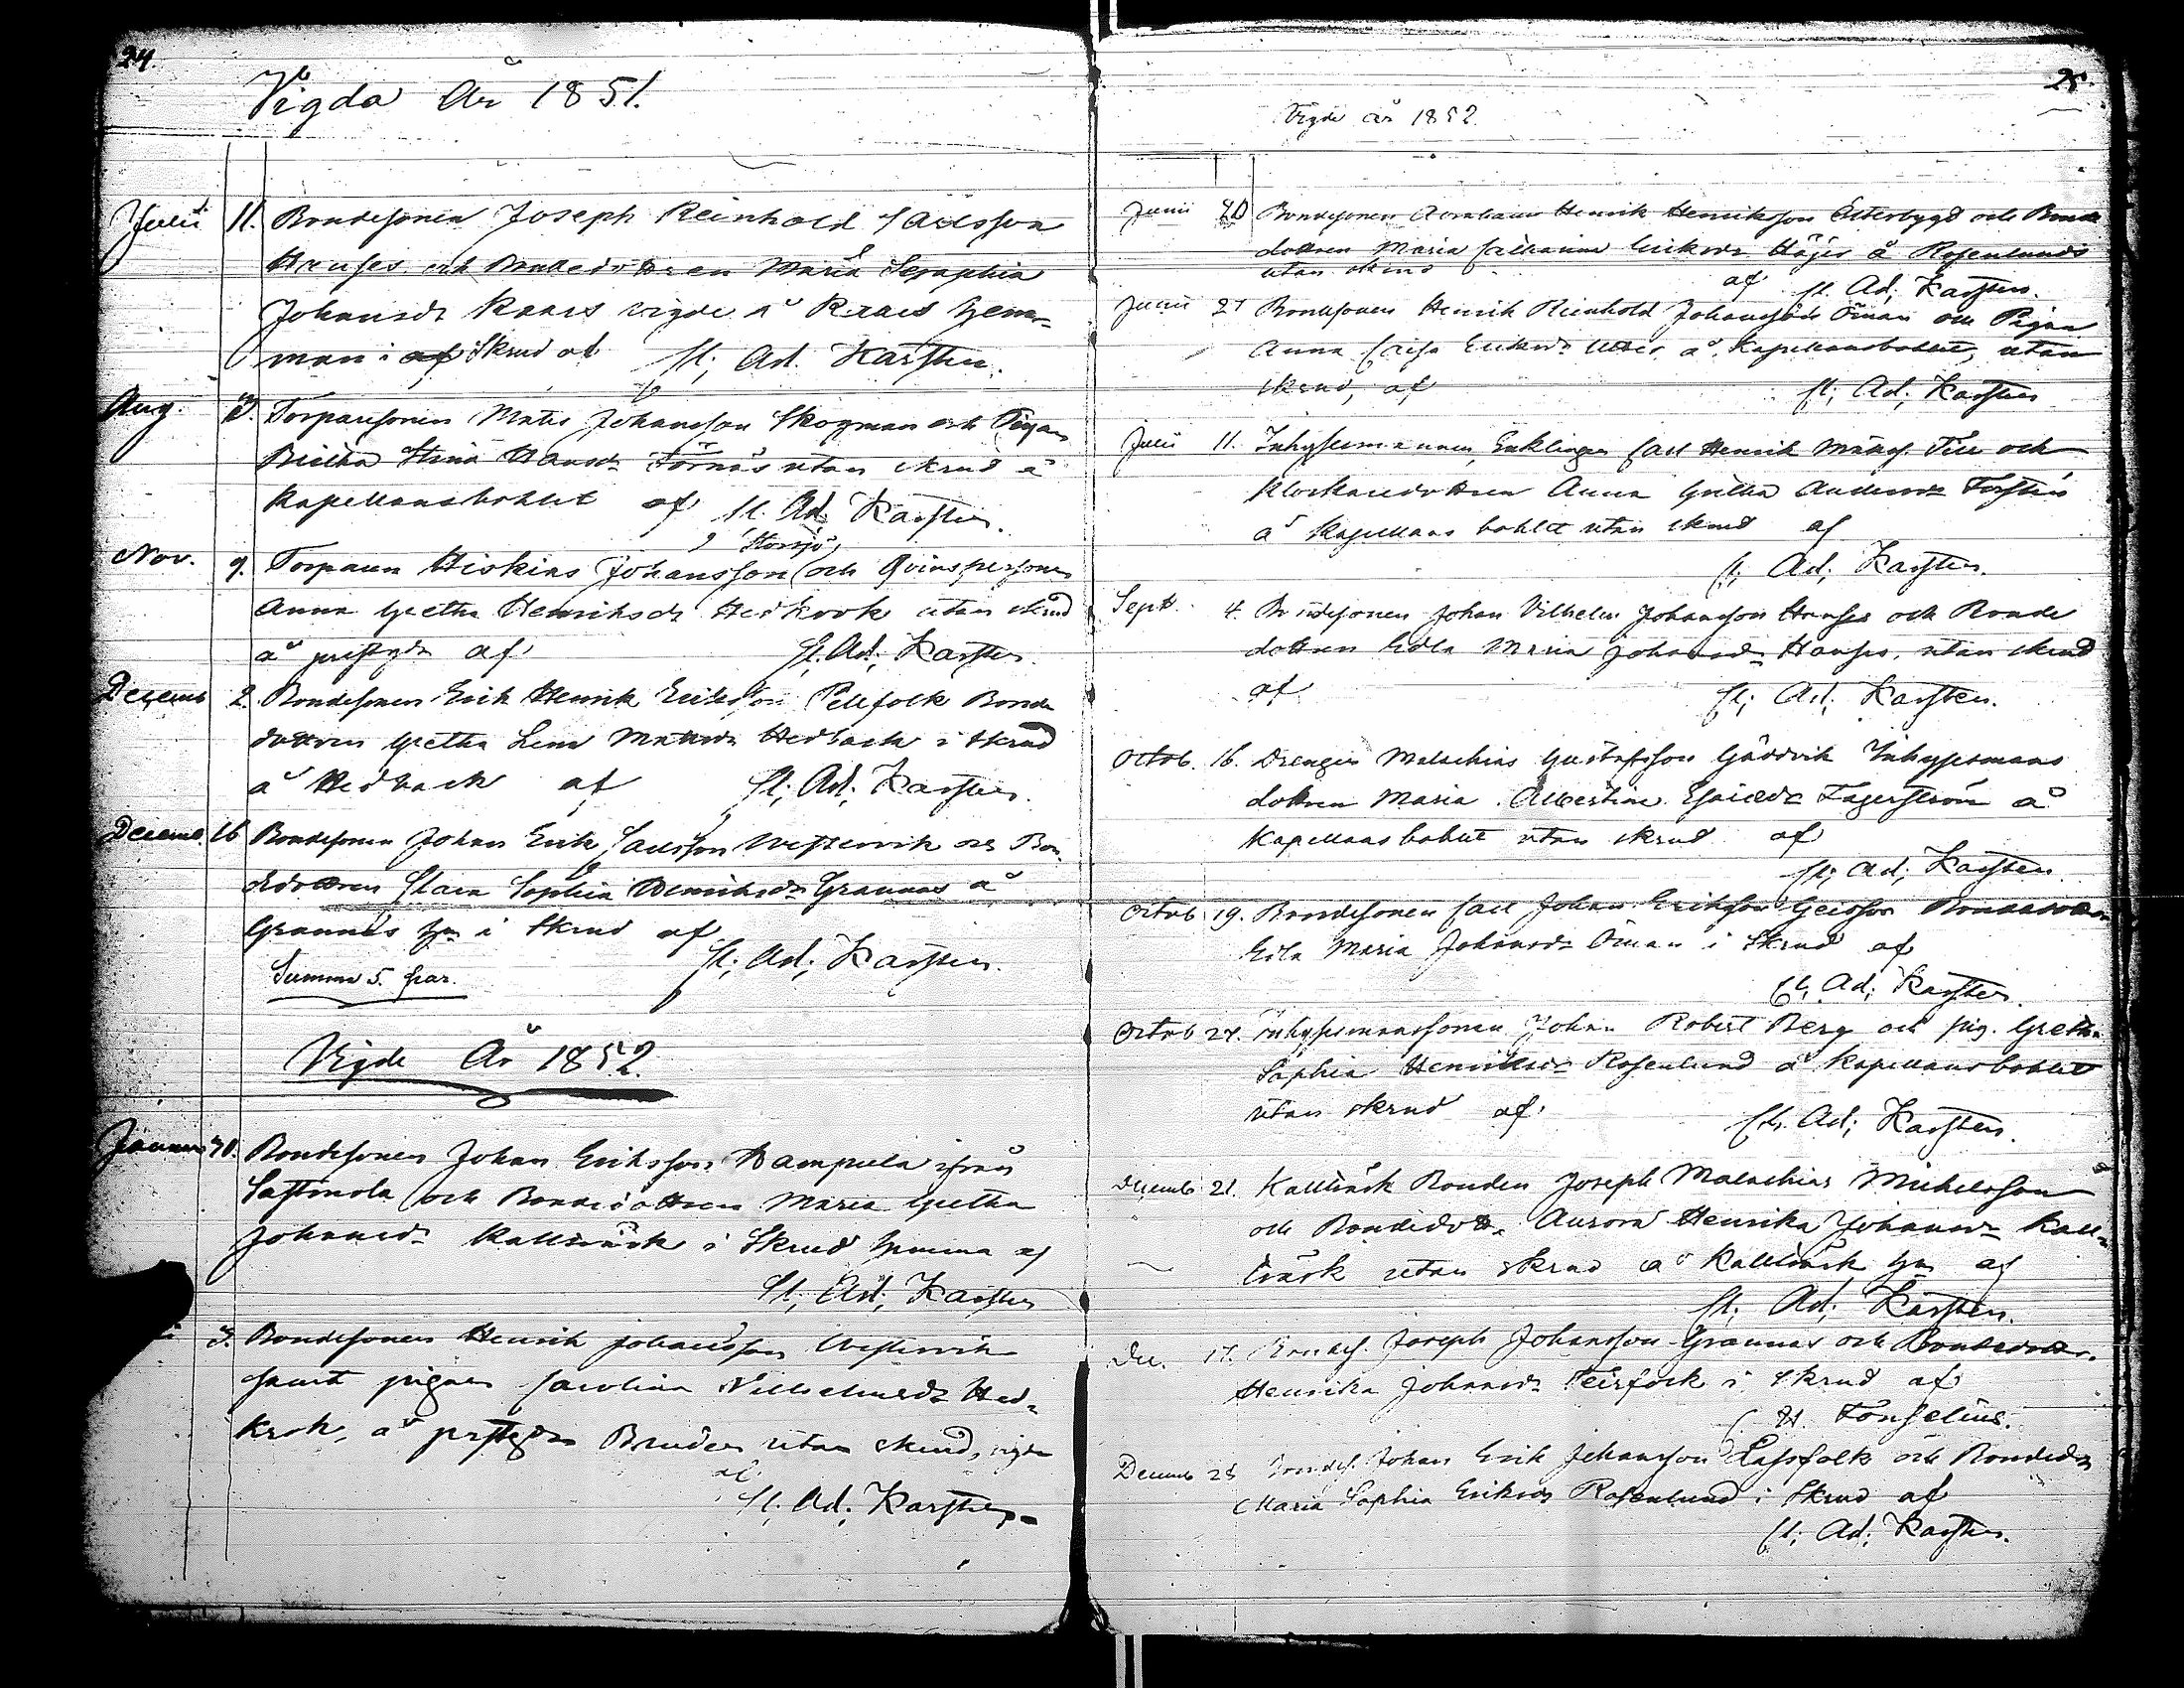 24.
Vigda År 1851.
Julii 11. Bondesonen Joseph Reinhold Carlsson
Hanses och Bondedottren Maria Seraphia
Johansdr Kaars vigde å Kaars hem-
man i af Skrud af Cl. Ad. Karsten.
Aug. 3. Torparesonen Matts Johansson Skogman och Pigan
Britha Stina Hansdr Törnäs utan skrud å
Kapellansbohlet af Cl. Ad. Karsten.
Storsjö
Nov. 9. Torparen Hiskias Johansson och Qvinspersonen
Anna Gretha Henriksdr Hedkrok utan skrud
å prestgdn af Cl. Ad. Karsten.
Decemb 2. Bondesonen Erik Henrik Eriksson Pellfolk Bonde
dottren Gretha Lena Mattsdr Hedback i skrud
å Hedback af Cl. Ad. Karsten.
Decemb. 26 Bondesonen Johan Erik Carlsson Westervik och Bon-
dedottren Clara Sophia Henriksdr Grannas å
Grannäs hn i Skrud af
Cl. Ad. Karsten.
Summa 5. par.
Vigde År 1852.
Januar Bondesonen Johan Eriksson Kampula ifrån
Sastmola och Bondedottren Maria Gretha
Johansdr Kallträsk i Skrud hemma af
Cl. Ad. Karsten
3. Bondesonen Henrik Johansson Westervik
samt pigan Carolina Vilhelmsdr Hed-
krok, å prstgdn Bruden utan skrud, vigde
af
Cl. Ad. Karsten.
25.
Vigde år 1852.
Junii 20 Bondesonen Abraham Henrik Henriksson Österbygd och Bonde
dottren Maria Catharina Eriksdr Höjer å Rosenlunds
utan skrud af Cl. Ad. Karsten.
Junii 27 Bondesonen Henrik Reinhold Johansson Öman och Pigan
Anna Caisa Eriksdr å Kapellansbohlet, utan
skrud, af Cl. Ad. Karsten
Julii 11. Inhysesmannen, Enklingen Carl Henrik Mattss. och
Klockaredottren Anna Gretha Andersdr Forstén
å Kapellans bohlet utan skrud af
Cl. Ad. Karsten.
Sept. 4. Bondesonen Johan Vilhelm Johansson Hanses och Bonde
dottren Edla Maria Johansdr Hanses, utan skrud
af Cl. Ad. Karsten.
Octob. 16. Drengen Malachias Gustafsson Gäddvik Inhysesmans
dottren Maria Albertina Esaiædr Lagerström å
Kapellansbohlet utan skrud af
Cl. Ad. Karsten.
Octob 19. Bondesonen Carl Johan Eriksson Geisor Bondedottren
Edla Maria Johansdr Öman i Skrud af
Cl. Ad. Karsten.
Octob 24. Inhysesmanssonen Johan Robert Berg och pig. Gretha
Sophia Henriksdr Rosenlund å Kapellansbohlet
utan skrud af
Cl. Ad. Karsten.
Decemb 21. Kallträsk Bonden Joseph Malachias Michelsson
och Bondedottr. Aurora Henrika Johansdr Kall-
träsk utan skrud å Kallträsk hn af
Cl. Ad. Karsten.
Dec. 17. Bondes. Joseph Johansson Grannas och Bondedottr.
Henrika Johansdr Teirfolk i Skrud af
Fonselius.
Decemb 28 Bondes. Johan Erik Johansson Lassfolk och Bonded.
Maria Sophia Eriksdr Rosenlund i Skrud af
Cl. Ad. Karsten.